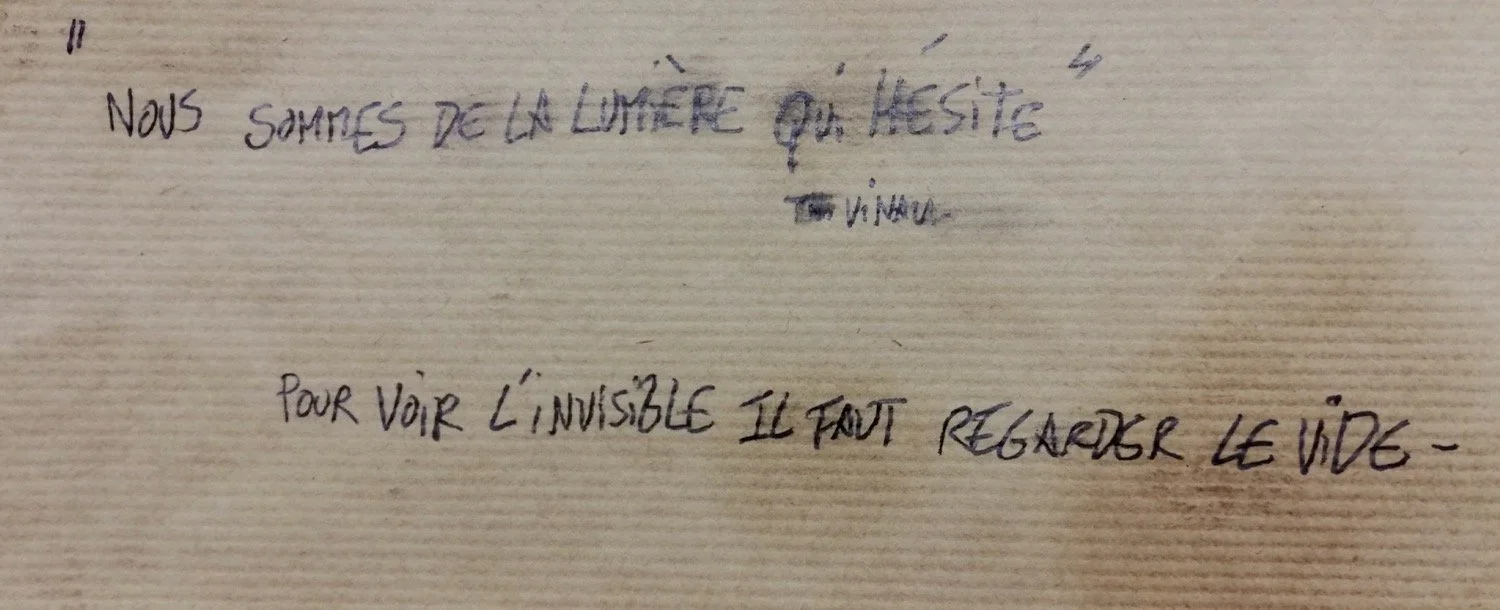 "NOUS SOMMES DE LA LUMIÈRE QUI HÉSITE"
VINAU
POUR VOIR L'INVISIBLE IL FAUT REGARDER LE VIDE -